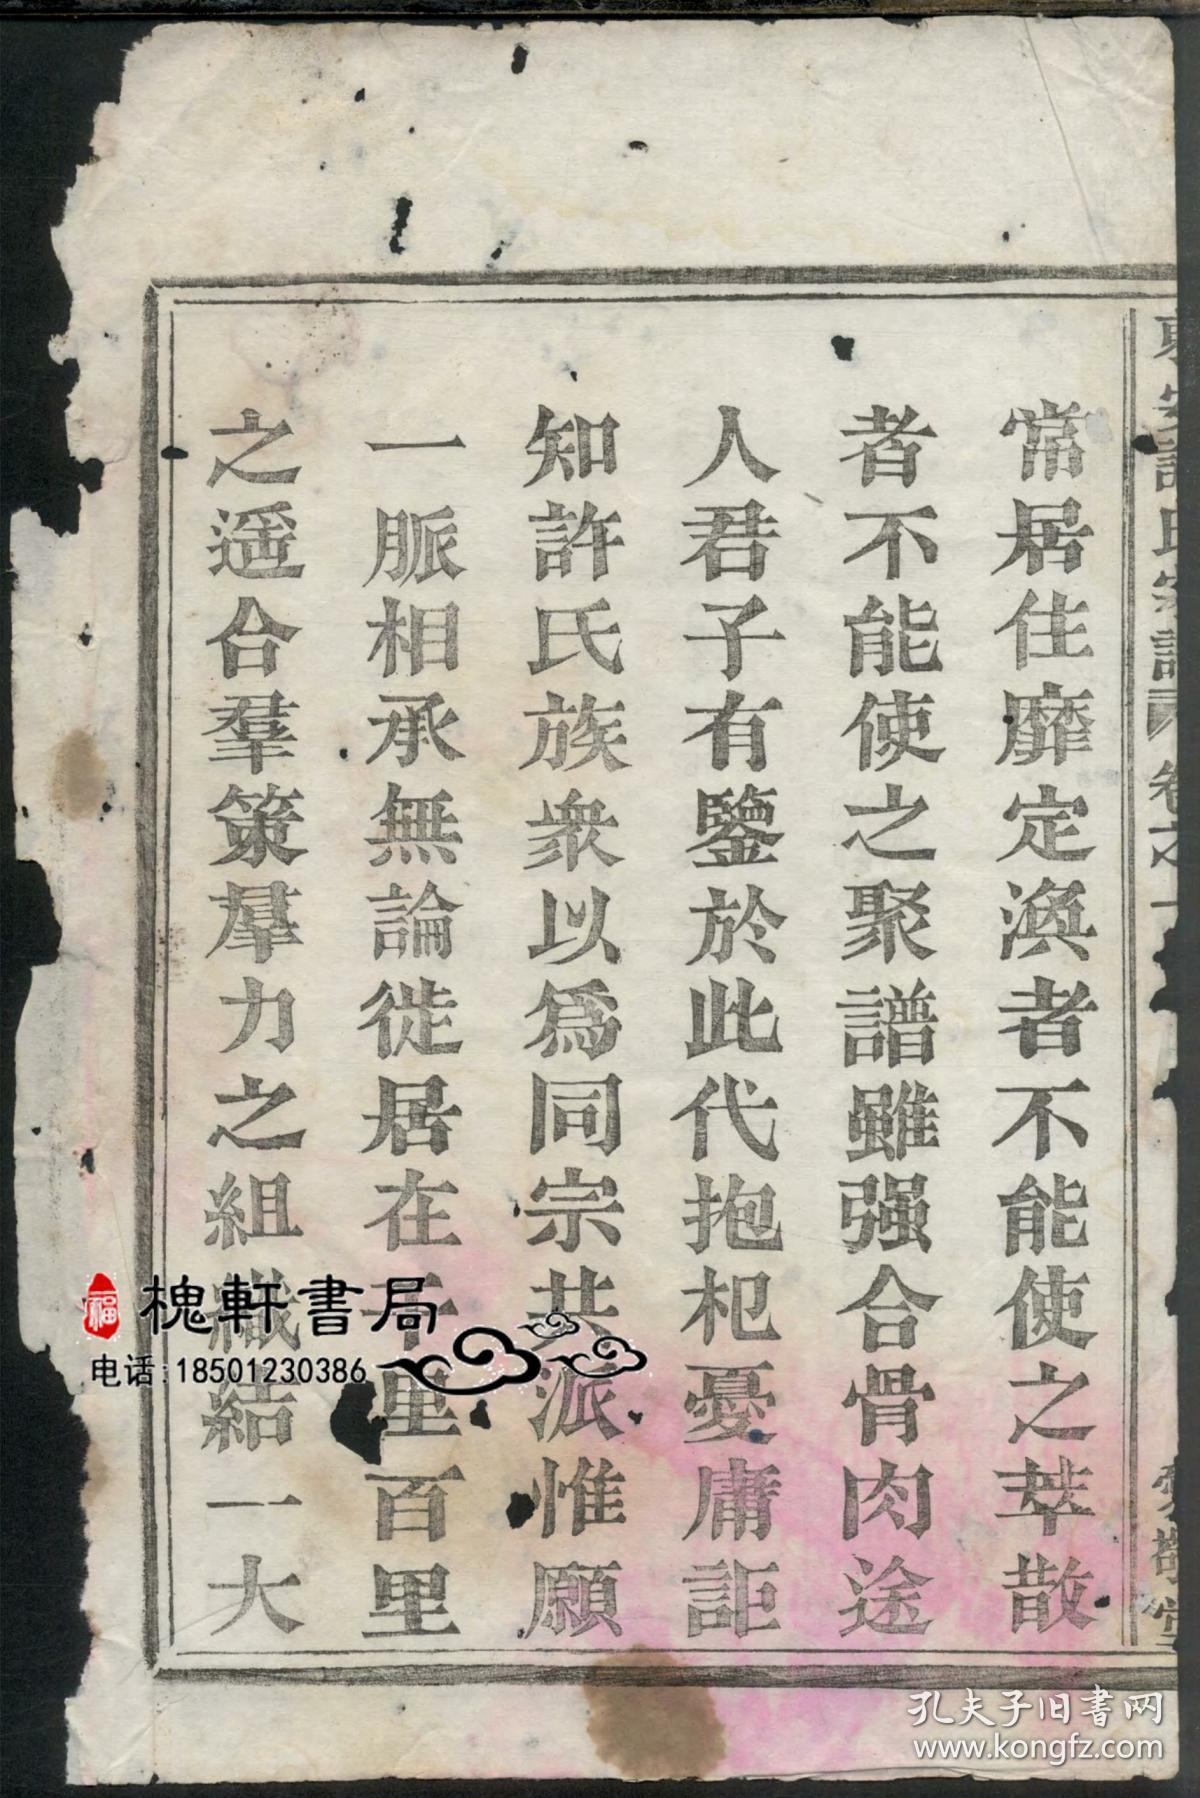 東安許氏家譜 卷之一 愛敬堂
常居住靡定渙者不能使之萃散
者不能使之聚譜雖强合骨肉途
人君子有鑒於此代抱杞憂庸詎
知許氏族衆以爲同宗共派惟願
一脈相承無論徙居在千里百里
之遥合羣策羣力之組織結一大
槐軒書局
福
电话:18501230386
孔夫子旧书网
www.kongfz.com